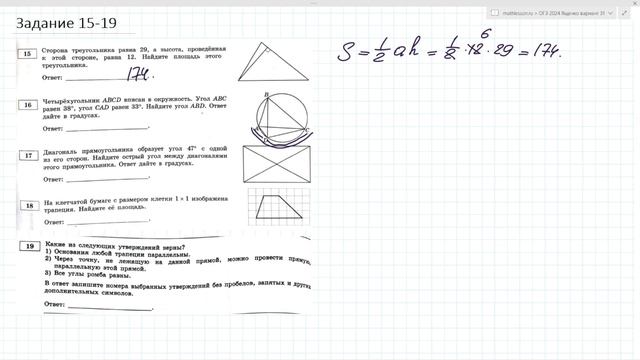 Задание 15-19
mathlesson.ru > ОГЭ 2024 Ященко вариант 31
15 Сторона треугольника равна 29, а высота, проведённая
к этой стороне, равна 12. Найдите площадь этого
треугольника.
Ответ: 174.
S = 1/2 ah = 1/2 · 12 · 29 = 174.
6
16 Четырёхугольник ABCD вписан в окружность. Угол ABC
равен 38°, угол CAD равен 33°. Найдите угол ABD. Ответ
дайте в градусах.
Ответ:
B
C
17 Диагональ прямоугольника образует угол 47° с одной
из его сторон. Найдите острый угол между диагоналями
этого прямоугольника. Ответ дайте в градусах.
Ответ:
18 На клетчатой бумаге с размером клетки 1 × 1 изображена
трапеция. Найдите её площадь.
Ответ:
19 Какие из следующих утверждений верны?
1) Основания любой трапеции параллельны.
2) Через точку, не лежащую на данной прямой, можно провести прямую,
параллельную этой прямой.
3) Все углы ромба равны.
В ответ запишите номера выбранных утверждений без пробелов, запятых и других
дополнительных символов.
Ответ: